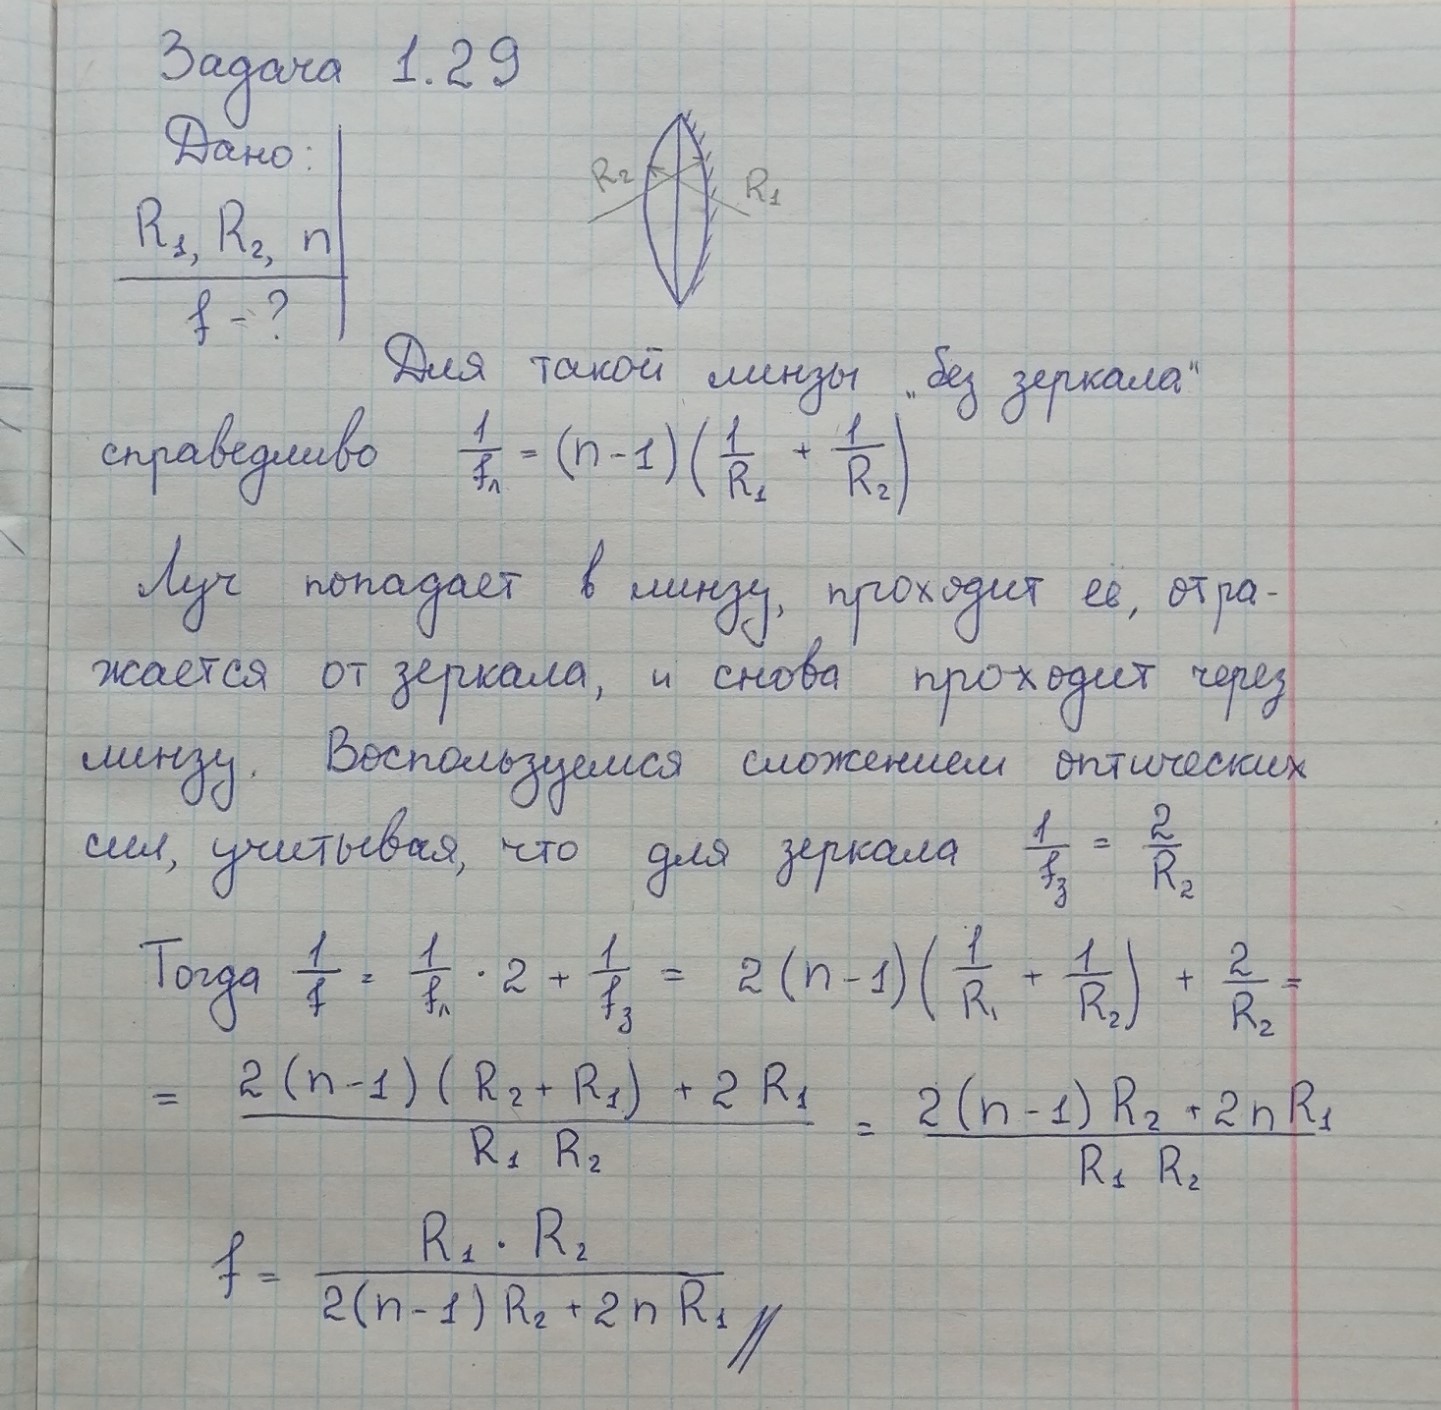 Задача 1.29
Дано:
R₁, R₂, n
f - ?
R₂ R₁
Для такой линзы „без зеркала"
справедливо 1/fл = (n-1)(1/R₁ + 1/R₂)
Луч попадает в линзу, проходит её, отра-
жается от зеркала, и снова проходит через
линзу. Воспользуемся сложением оптических
сил, учитывая, что для зеркала 1/fз = 2/R₂
Тогда 1/f = 1/fл · 2 + 1/fз = 2(n-1)(1/R₁ + 1/R₂) + 2/R₂ =
= (2(n-1)(R₂+R₁) + 2R₁)/(R₁ R₂) = (2(n-1)R₂ + 2nR₁)/(R₁ R₂)
f = (R₁ · R₂)/(2(n-1)R₂ + 2nR₁)